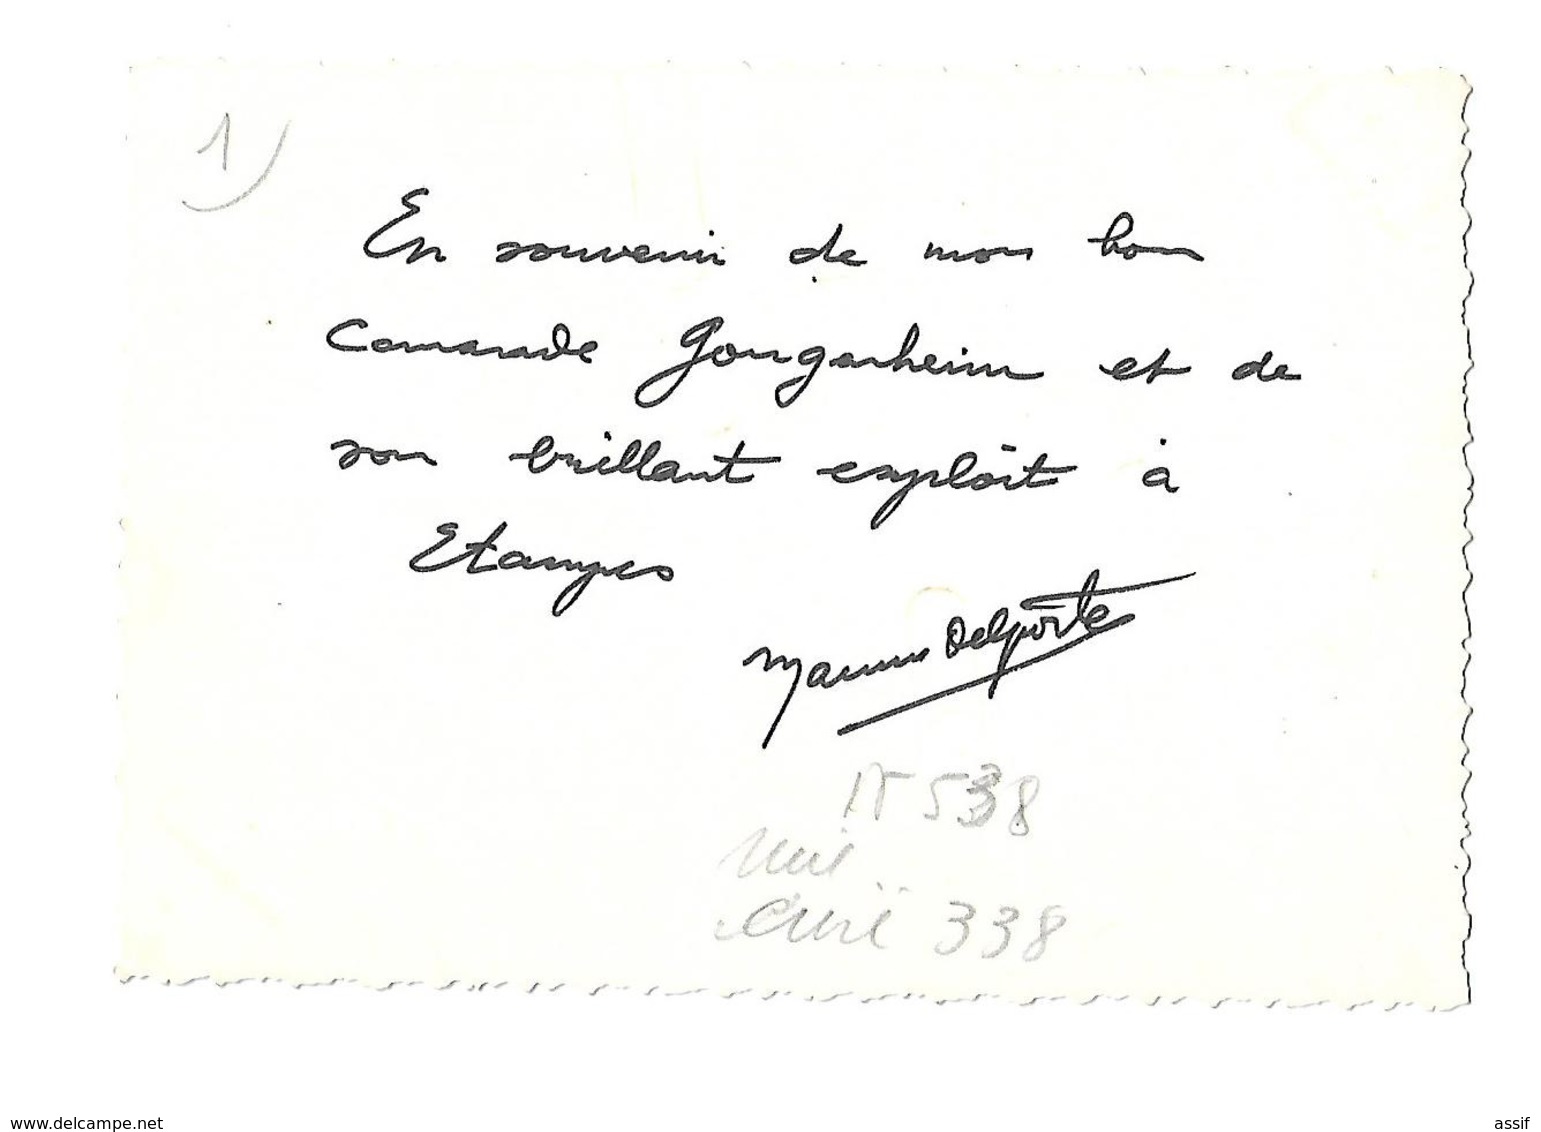 1)
En souvenir de mon bon
Camarade Gougenheim et de
son brillant exploit à
Etampes
Delporte
538
338
www.delcampe.net
assif